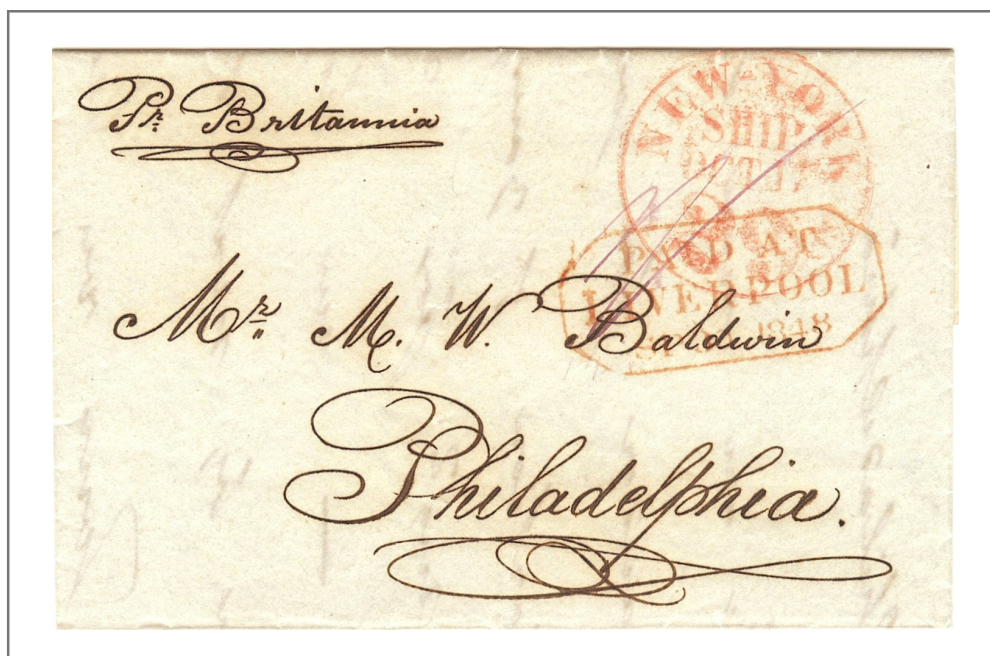 Pr. Britannia
NEW-YORK
SHIP
OCT
PAID AT
LIVERPOOL
1848
Mr. M. W. Baldwin
Philadelphia.